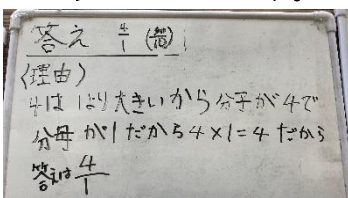 答え 4/1
〈理由〉
4は1より大きいから分子が4で
分母が1だから4×1=4だから
答えは 4/1